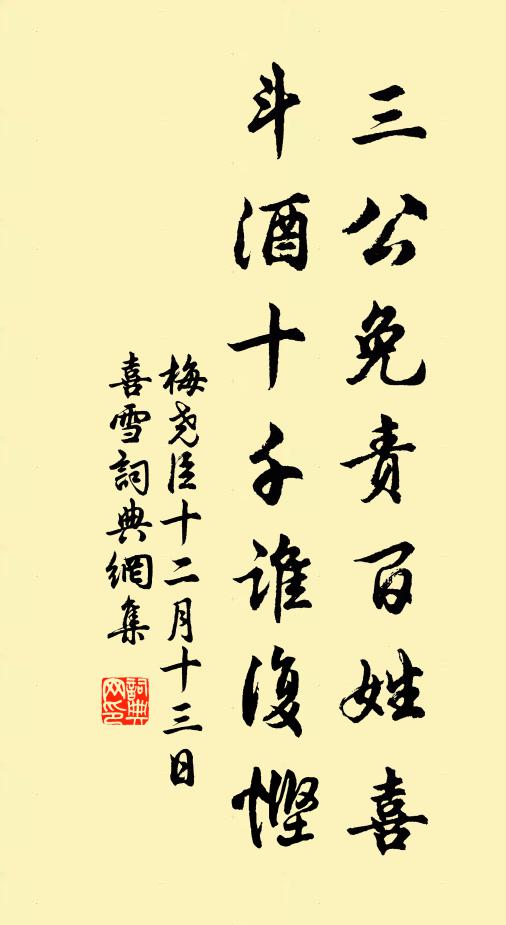 三公免责百姓喜
斗酒十千谁復悭
梅尧臣十二月十三日
喜雪詞典網集
詞典网印